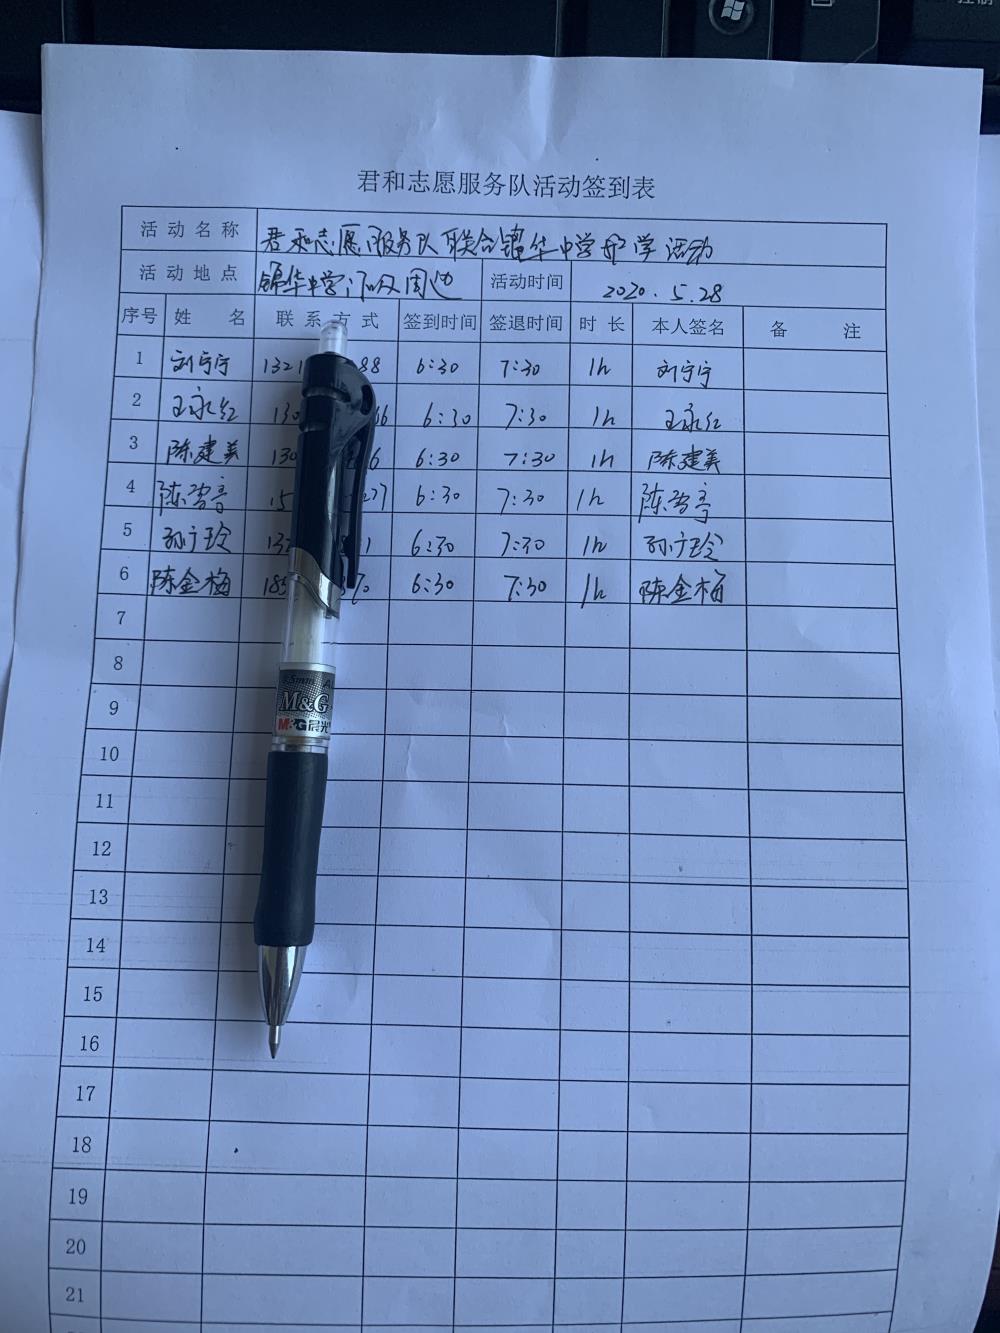 君和志愿服务队活动签到表
活动名称 君和志愿服务队联合锦华中学护学活动
活动地点 锦华中学门口及周边 活动时间 2020.5.28
序号 姓名 联系方式 签到时间 签退时间 时长 本人签名 备注
1 刘宁宁 1321 88 6:30 7:30 1h 刘宁宁
2 王永红 130 66 6:30 7:30 1h 王永红
3 陈建美 130 6 6:30 7:30 1h 陈建美
4 陈 15 277 6:30 7:30 1h 陈
5 孙广玲 132 1 6:30 7:30 1h 孙广玲
6 陈金梅 185 70 6:30 7:30 1h 陈金梅
7
8
9
10
11
12
13
14
15
16
17
18
19
20
21
0.5mm
M&G
M&G晨光